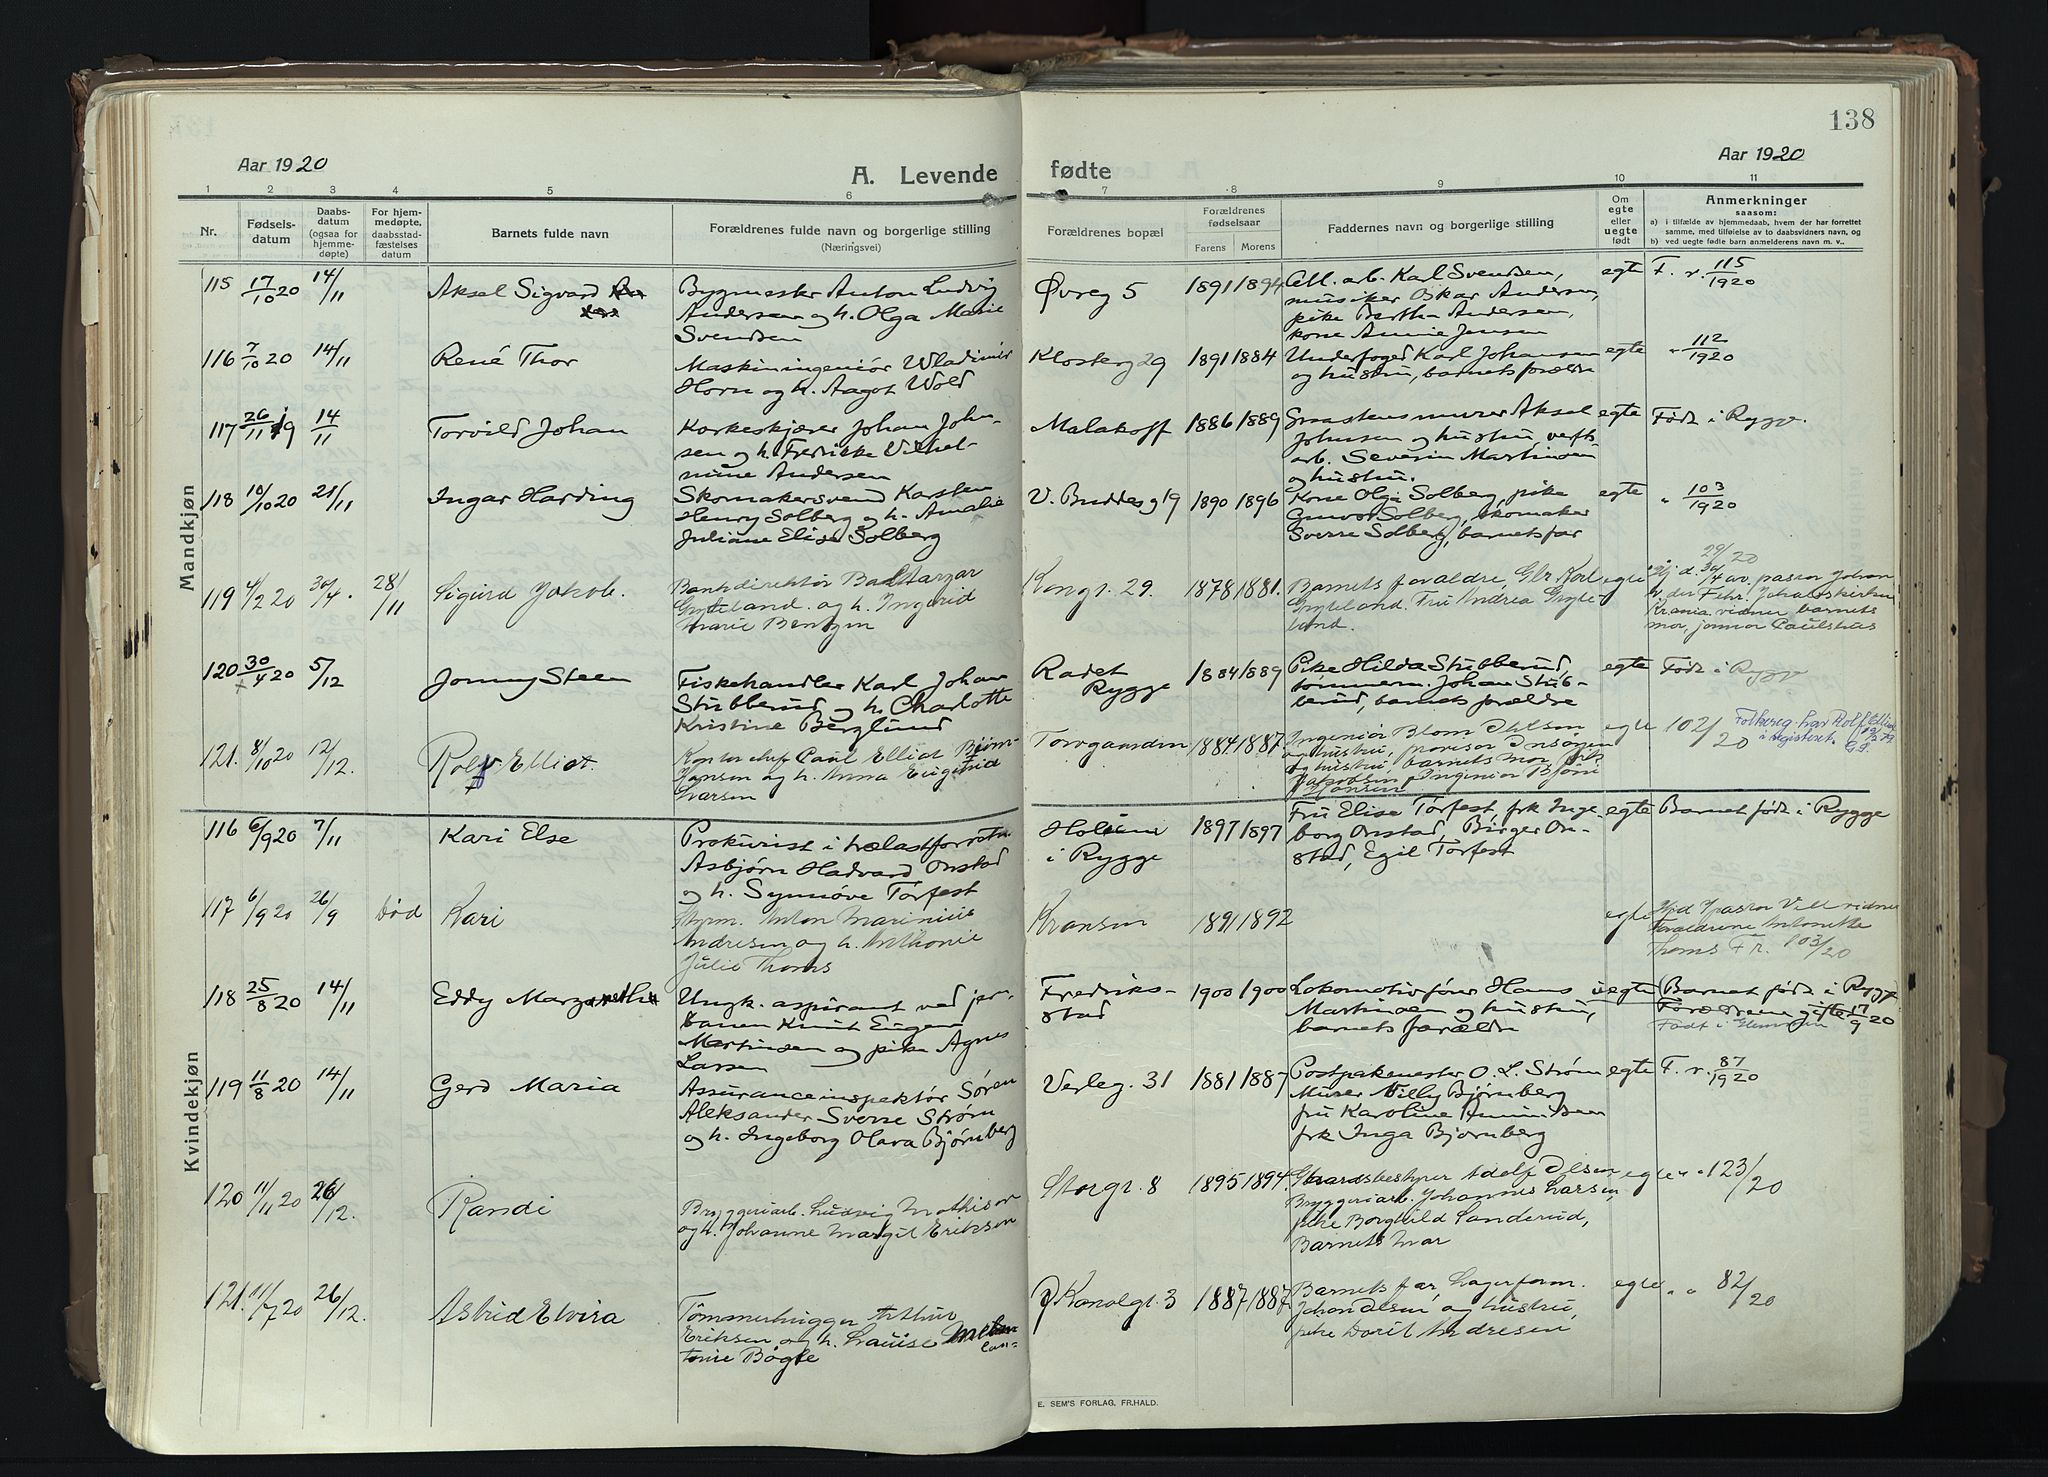 138
Aar 1920
A. Levende fødte
Aar 1920
1 2 3 4 5 6 7 8 9 10 11
Nr.
Fødsels-
datum
Daabs-
datum
(ogsaa for
hjemme-
døpte)
For hjem-
medøpte,
daabsstad-
fæstelses
datum
Barnets fulde navn
Forældrenes fulde navn og borgerlige stilling
(Næringsvei)
Forældrenes bopæl
Forældrenes
fødselsaar
Farens Morens
Faddernes navn og borgerlige stilling
Om
egte
eller
uegte
født
Anmerkninger
saasom:
a) i tilfælde av hjemmedaab, hvem der har forrettet
samme, med tilføielse av to daabsvidners navn, og
b) ved uegte fødte barn anmelderens navn m. v.
Mandkjøn
115 17/10 20 14/11 Aksel Sigvard
Bygmester Anton Ludvig
Andersen og h. Olga Marie
Svendsen
Øvreg 5 1891 1894
arb. Karl Svendsen,
musiker Oskar Andersen,
pike Andersen,
kone Annie Jensen
egte F. r. 115/1920
116 7/10 20 14/11 René Thor
Maskiningeniør Wladimir
Horn og h. Aagot Wold
Klosterg 29 1891 1884
Underfoged Karl Johansen
og hustru, barnets forældre
egte " 112/1920
117 26/11 19 14/11 Torvild Johan
Korkeskjærer Johan John-
sen og h. Fredrikke Vilhel-
mine Andersen
Malakoff 1886 1889
Aksel
Johnsen og hustru, verft-
arb. Severin Martinsen
og hustru.
egte Født i Rygge.
118 10/10 20 21/11 Ingar Harding
Skomakersvend Karsten
Henry Solberg og h. Amalie
Juliane Elise Solberg
V. Buddesg 19 1890 1896
Kone Olga Solberg, pike
Gunvor Solberg, skomaker
Sverre Solberg, barnets far
egte " 103/1920
119 4/2 20 30/4. 28/11 Sigurd Jakob.
Bankdirektør Baltarzar
Gryteland. og h. Ingerid
Marie Bentzen
Kongr. 29. 1878 1881.
Barnets forældre, Karl
Gryteland. Fru Andrea Gryte-
land.
egte 29/20
d. 30/4 av pastor Johan
Johaneskirken
Krania. vidner barnets
mor,
120 30/4 20 5/12 Jonny Steen
Fiskehandler Karl Johan
Stubberud og h. Charlotte
Kristine Berglund
Radet
Rygge
1884 1889
Pike Hilda Stubberud,
tømmerm. Johan Stub-
berud, barnets forældre
egte Født i Rygge
121. 8/10 20 12/12. Rolf Elliot.
Kontorchef Paul Elliot Bjørn-
Hansen og h. Anna Eugenid
Larsen
1884. 1887.
Ingeniør Blom
og hustru,
og hustru, barnets mor, frk
Jakobsen Ingeniør Bjørn
Hansen
egte 102/20
Folkereg. har Rolf Elliot
i registeret.
Kvindekjøn
116 6/9 20 7/11 Kari Else
Prokurist i trælastforretn.
Asbjørn Hadvard Onstad
og h. Synnøve Torfest
i Rygge
1897 1897
Fru Elise Torfest, frk Inge-
borg Onstad, Birger On-
stad, Egil Torfest
egte Barnet født i Rygge
117 6/9 20 26/9 Død Kari
Styrm. Anton Marinius
Andresen og h. Anthonie
Julie Thoms
Kransen 1891 1892
egte Hjd. pastor
Forældrene Antonette
Thoms F r. 103/20
118 25/8 20 14/11 Eddy Margarethe
Ungk. aspirant ved jern-
banen Knut Eugen
Martinsen og pike Agnes
Larsen
Fredriks-
stad
1900 1900
Lokomotivfører Hans
Martinsen og hustru,
barnets forældre
uegte Barnet født i Rygge
Forældrene gifted 17/9 20
Født i Glemmen
119 11/8 20 14/11 Gerd Maria
Assuranceinspektør Søren
Aleksander Sverre Strøm
og h. Ingeborg Olava Bjørnberg
Verleg. 31 1881 1887
Postpakmester O. L. Strøm
Murer Willy Bjørnberg
fru Karoline
frk Inga Bjørnberg
egte F. r. 87/1920
120 11/11 20 26/12. Randi
Bryggeriarb. Ludvig Mathisen
og h. Johanne Margit Eriksen
Storgr. 8 1895 1894.
Gaardsbestyrer Adolf Olsen
Bryggeriarb. Johannes Larsen,
pike Borghild Sanderud,
Barnets mor
egte " " 123/20
121. 11/7 20 26/12. Astrid Elvira
Tømmerhugger Arthur
Eriksen og h. Louise
Bøgle
Kanalgt. 3 1887 1887
Barnets far, Lagerform.
Johan Olsen og hustru,
pike Dorit Andresen,
egte " " 82/20
E. SEM'S FORLAG, FR.HALD.